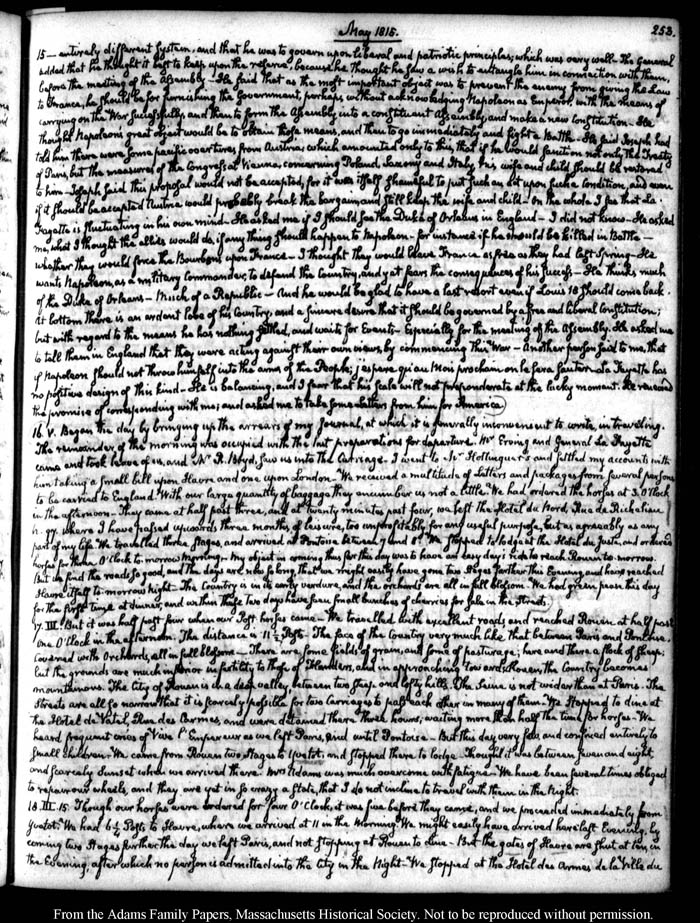 May 1815.
253.
15 — entirely different System, and that he was to govern upon liberal and patriotic principles; which was very well — The General
added that he thought it best to keep upon the reserve, because he thought he saw a wish to entangle him in connection with them,
before the meeting of the Assembly — He said that as the most important object was to prevent the enemy from giving the Law
to France, he should be for furnishing the Government, perhaps without acknowledging Napoleon as Emperor, with the means of
carrying on the War successfully, and then to form the Assembly into a constituent Assembly, and make a new Constitution — He
thought Napoleon's great object would be to obtain those means, and then to go immediately and fight a Battle — He said Joseph had
told him there were some pacific overtures from Austria; which amounted only to this, that if he would sanction not only the Treaty
of Paris, but the measures of the Congress at Vienna, concerning Poland, Saxony and Italy, his wife and child should be restored
to him — Joseph said this proposal would not be accepted, for it was itself shameful to put such an act upon such a condition, and even
if it should be accepted Austria would probably break the bargain, and still keep the wife and child — On the whole I see that La
Fayette is fluctuating in his own mind — He asked me if I should see the Duke of Orleans in England — I did not know — He asked
me, what I thought the allies would do, if any thing should happen to Napoleon — for instance if he should be killed in Battle —
whether they would force the Bourbons upon France — I thought they would leave France as free as they had last Spring — He
wants Napoleon, as a military Commander, to defend the Country, and yet fears the consequences of his success — He thinks much
of the Duke of Orleans — Much of a Republic — And he would be glad to have a last resort even if Louis 18 should come back.
At bottom there is an ardent love of his Country; and a sincere desire that it should be governed by a free and liberal Constitution;
but with regard to the means he has nothing settled, and waits for Events — Especially for the meeting of the Assembly. He asked me
to tell them in England that they were acting against their own views by commencing this War — Another person said to me, that
if Napoleon should not throw himself into the arms of the People; j'espere qu'au Mois prochain on le fera sauter — La Fayette has
no positive design of this kind — He is balancing, and I fear that his scale will not preponderate at the lucky moment. He renewed
the promise of corresponding with me; and asked me to take some letters from him for America
16. V. Began the day by bringing up the arrears of my Journal, at which it is generally inconvenient to write, in traveling.
The remainder of the morning was occupied with the last preparations for departure. Mr Erving and General La Fayette
came and took leave of us, and Mr. R. Boyd, saw us into the Carriage. I went to Mr Hottinguer's and settled my accounts with
him taking a small bill upon Havre and one upon London — We received a multitude of Letters and packages from several persons
to be carried to England. With our large quantity of baggage they encumber us not a little. We had ordered the horses at 3. O'Clock
in the afternoon — They came at half past three, and at twenty minutes past four, we left the Hotel du Nord, Rue de Richelieu
n. 97. where I have passed upwards three months, of leisure, too unprofitably for any useful purpose, but as agreeably as any
part of my life. We travelled three stages, and arrived at Pontoise between 7 and 8. We stopped to lodge at the Hotel du Juste, and ordered
horses for three O'Clock to-morrow Morning. My object in coming thus far this day was to have an easy day's ride to reach Rouen to-morrow.
But we find the roads so good, and the days are now so long, that we might easily have gone two Stages further this Evening, and have reached
Havre itself to-morrow night — The Country is in its early verdure, and the orchards are all in full blossom — We had green peas this day
for the first time at dinner, and within these two days have seen small bunches of cherries for sale in the Streets.
17. III. But it was half past four when our Post horses came — We travelled with excellent roads and reached Rouen at half past
One O'Clock in the afternoon. The distance is 11 1/2 Posts. The face of the Country very much like that between Paris and Pontoise.
Covered with Orchards, all in full blossom — There are some fields of grain, and some of pasturage; here and there a flock of sheep;
but the grounds are much inferior in fertility to those of Flanders, and in approaching towards Rouen, the Country becomes
mountainous. The City of Rouen is in a deep valley, between two steep and lofty hills. The Seine is not wider than at Paris. The
Streets are all so narrow that it is scarcely possible for two Carriages to pass each other in many of them — We stopped to dine at
the Hotel de Vatel, Rue des Carmes, and were detained there three hours, waiting more than half the time for horses — We
heard frequent cries of Vive l'Empereur as we left Paris, and until Pontoise — But this day very few, and confined entirely to
small children — We came from Rouen two stages to Yvetot and stopped there to lodge. Though it was between seven and eight,
and scarcely sunset when we arrived there. Mrs Adams was much overcome with fatigue — We have been several times obliged
to repair our wheels, and they are yet in so crazy a state, that I do not incline to travel with them in the Night.
18. III. 15. Though our horses were ordered for four O'Clock, it was five before they came, and we proceeded immediately from
Yvetot. We had 6 1/2 Posts to Havre, where we arrived at 11 in the Morning. We might easily have arrived here last Evening, by
coming two Stages further the day we left Paris, and not stopping at Rouen to dine — But the gates of Havre are shut at ten, in
the Evening, after which no person is admitted into the City in the Night — We stopped at the Hotel des Armes de la Ville du
From the Adams Family Papers, Massachusetts Historical Society. Not to be reproduced without permission.